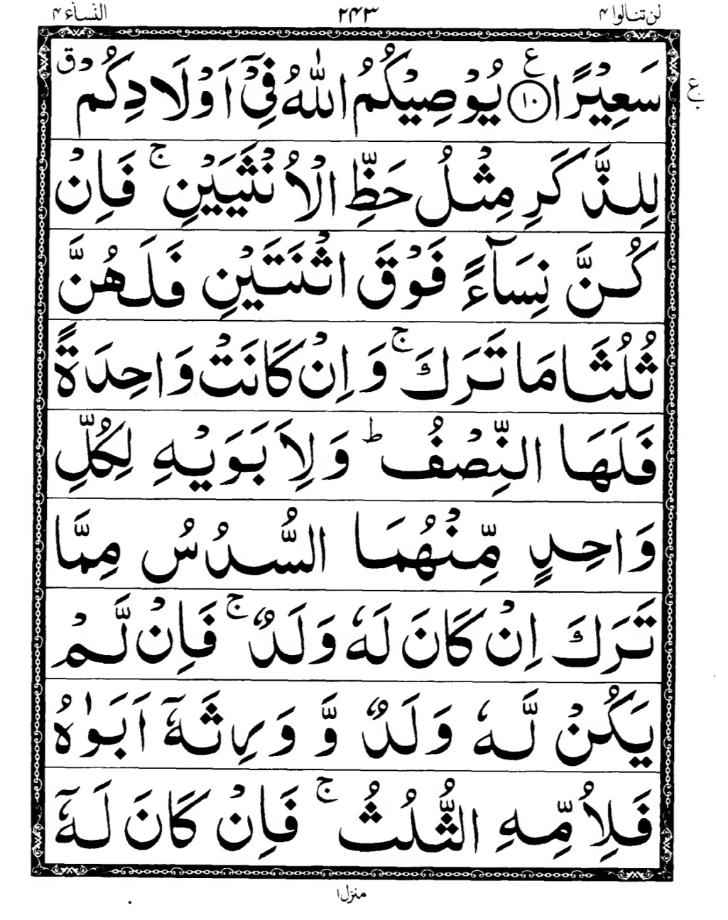 لن تنالوا ۴ ۲۴۳ النسآء ۴
سَعِيْرًا ۧ ﴿۱۰﴾ يُوْصِيْكُمُ اللّٰهُ فِيْۤ اَوْلَادِكُمْ ۗ ع
لِلذَّكَرِ مِثْلُ حَظِّ الْاُنْثَيَيْنِ ۚ فَاِنْ
كُنَّ نِسَآءً فَوْقَ اثْنَتَيْنِ فَلَهُنَّ
ثُلُثَا مَا تَرَكَ ۚ وَاِنْ كَانَتْ وَاحِدَةً
فَلَهَا النِّصْفُ ؕ وَلِاَبَوَيْهِ لِكُلِّ
وَاحِدٍ مِّنْهُمَا السُّدُسُ مِمَّا
تَرَكَ اِنْ كَانَ لَهٗ وَلَدٌ ۚ فَاِنْ لَّمْ
يَكُنْ لَّهٗ وَلَدٌ وَّ وَرِثَهٗۤ اَبَوٰهُ
فَلِاُمِّهِ الثُّلُثُ ۚ فَاِنْ كَانَ لَهٗۤ
منزل ۱